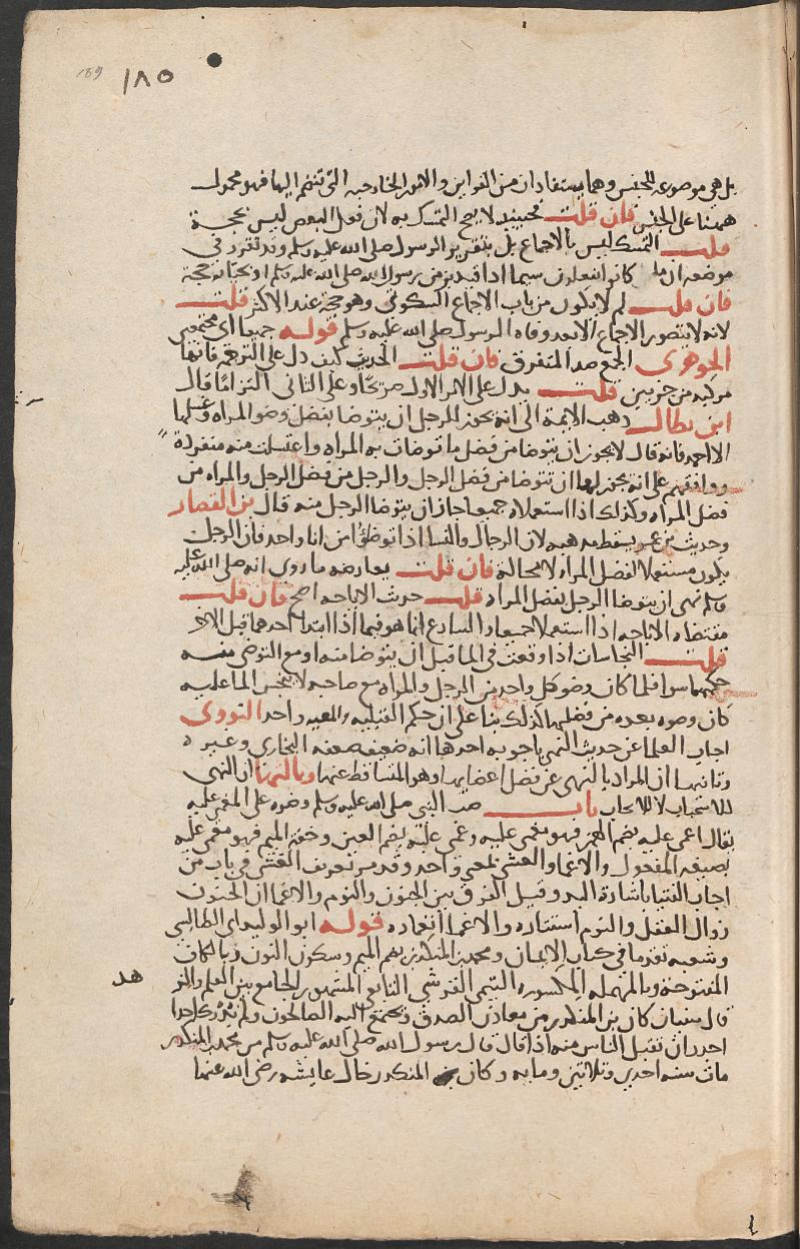 ١٨٥ 189
بل هي موضوعة للجنس وهما يستفادان من القراين والامور الخارجيه التي تنضم اليها فهو محمول
ههنا على الجنس فان قلت فحينيذ لا يصح التمسك به لان فعل البعض ليس بحجة
قلت التمسك ليس بالاجماع بل بتقرير الرسول صلى الله عليه وسلم وقد تقرر في
موضعه ان ما كانوا يفعلون سيما اذا قيد بزمن رسول الله صلى الله عليه وسلم او بحياته حجة
فان قلت لم لا يكون من باب الاجماع السكوتي وهو حجة عند الاكثر قلت
لانه لا يتصور الاجماع الا بعد وفاه الرسول صلى الله عليه وسلم قوله جميعا اي مجتمعين
الجوهري الجمع ضد المتفرق فان قلت الحديث كيف دل على الترجمه فانها
مركبه من جزيين قلت يدل على الامر الاول صريحا وعلى الثاني التزاما قال
ابن بطال ذهب الايمة الى انه يجوز للرجل ان يتوضا بفضل وضو المراه وغسلها
الا احمد فانه قال لا يجوز ان يتوضا من فضل ما توضات به المراه واغتسلت منه منفردة
ووافقهم على انه يجوز لهما ان تتوضا من فضل الرجل والرجل من فضل الرجل والمراه من
فضل المراه وكذلك اذا استعملاه جميعا جاز ان يتوضا الرجل منه قال بن القصار
وحديث بن عمر يسقط مذهبه لان الرجال والنسا اذا توضؤا من انا واحد فان الرجل
يكون مستعملا لفضل المراه لا محالة فان قلت يعارضه ما روي انه صلى الله عليه
وسلم نهى ان يتوضا الرجل بفضل المراه قلت حديث الاباحه اصح فان قلت
مقتضاه الاباحه اذا استعملاه جميعا و انما هو فيما اذا ابتدا احدهما قبل الاخر
قلت النجاسات اذا وقعت في الما قبل ان يتوضا منه او مع التوضي منه
حكمهما سوا فلما كان وضو كل واحد من الرجل والمراه مع صاحبه لا ينجس الما عليه
كان وضوه بعده من فضلهما كذلك بنا على ان حكم القبليه والمعيه واحد النووي
اجاب العلما عن حديث النهي باجوبه احدها انه ضعيف ضعفه البخاري وغيره
وثانيها ان المراد بالنهي عن فضل اعضايها وهو المتساقط عنها وثالثها ان النهي
للاستحباب لا للايجاب باب صب النبي صلى الله عليه وسلم وضوه على المغمى عليه
يقال اغمي عليه بضم الهمز فهو مغمى عليه وغمي عليه بضم الغين وخفة الميم فهو مغمي عليه
بصيغه المفعول والاغما والغشي بمعنى واحد وقد مر تعريف الغشي في باب من
اجاب الفتيا باشارة اليد وقيل الفرق بين الجنون والنوم والاغما ان الجنون
زوال العقل والنوم استتاره والاغما انغماره قوله ابو الوليد اي الطيالسي
وشعبه تقدما في كتاب الايمان ومحمد بن المنكدر بضم الميم وسكون النون وبالكاف
المفتوحة وبالمهمله المكسوره التيمي القرشي التابعي المشهور الجامع بين العلم والزهد
قال سفيان كان بن المنكدر من معادن الصدق ويجتمع اليه الصالحون ولم يدرك احدا
اجدر ان تقبل الناس منه اذا قال قال رسول الله صلى الله عليه وسلم من محمد بن المنكدر
مات سنه احدي وثلاثين ومايه وكان المنكدر خال عايشه رضي الله عنها